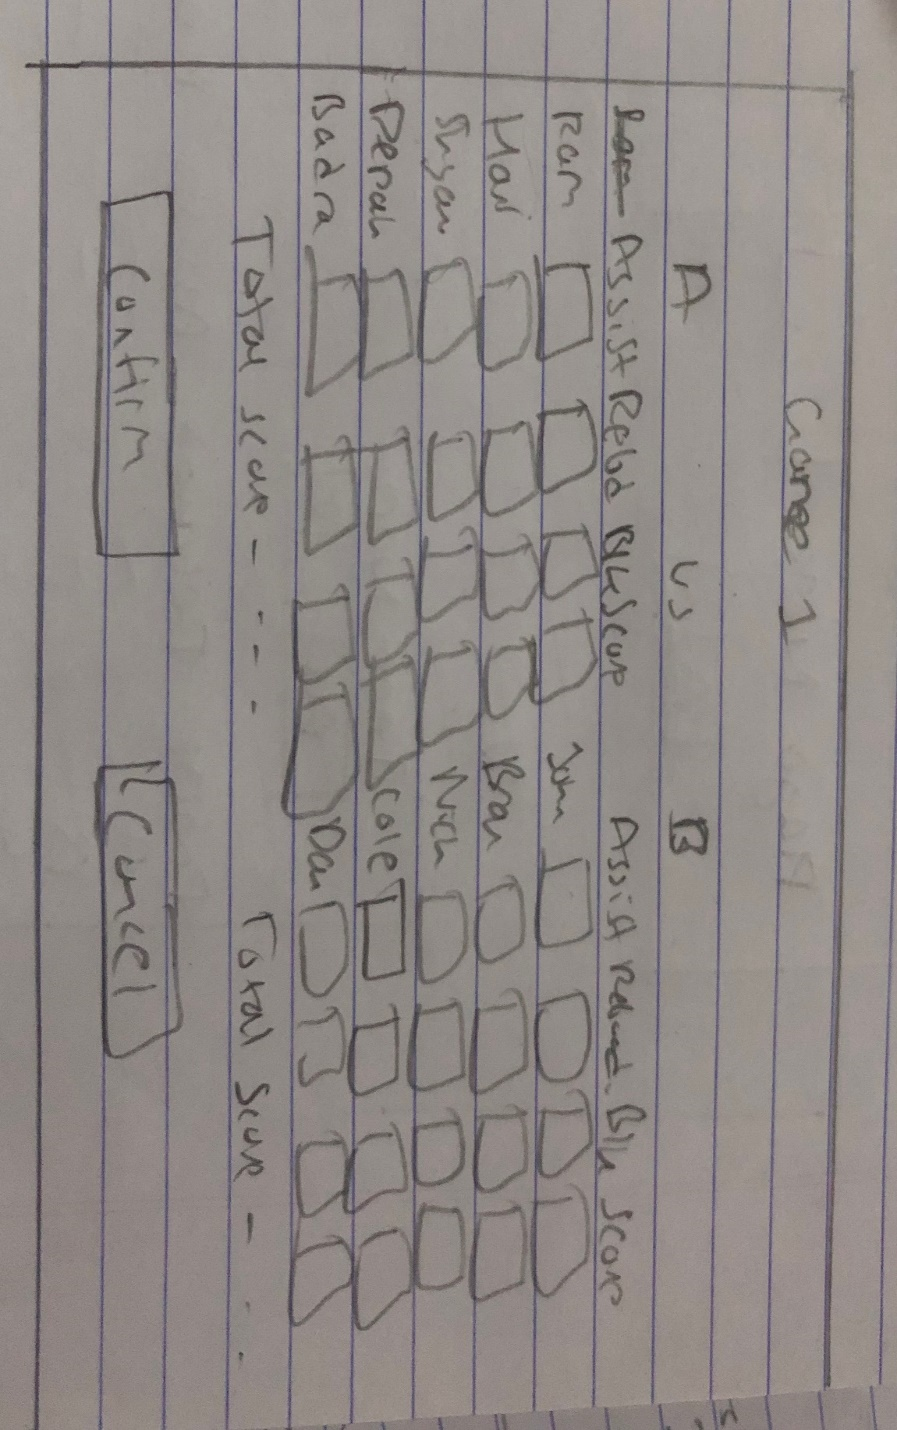 Game 1
A vs B
Assist Rebd Blk Score Assist Rebnd. Blk Score
Ram John
Hari Bran
Shyam Nich
Derah Cole
Badra Dan
Total score - - - Total Score - - -
Confirm Cancel